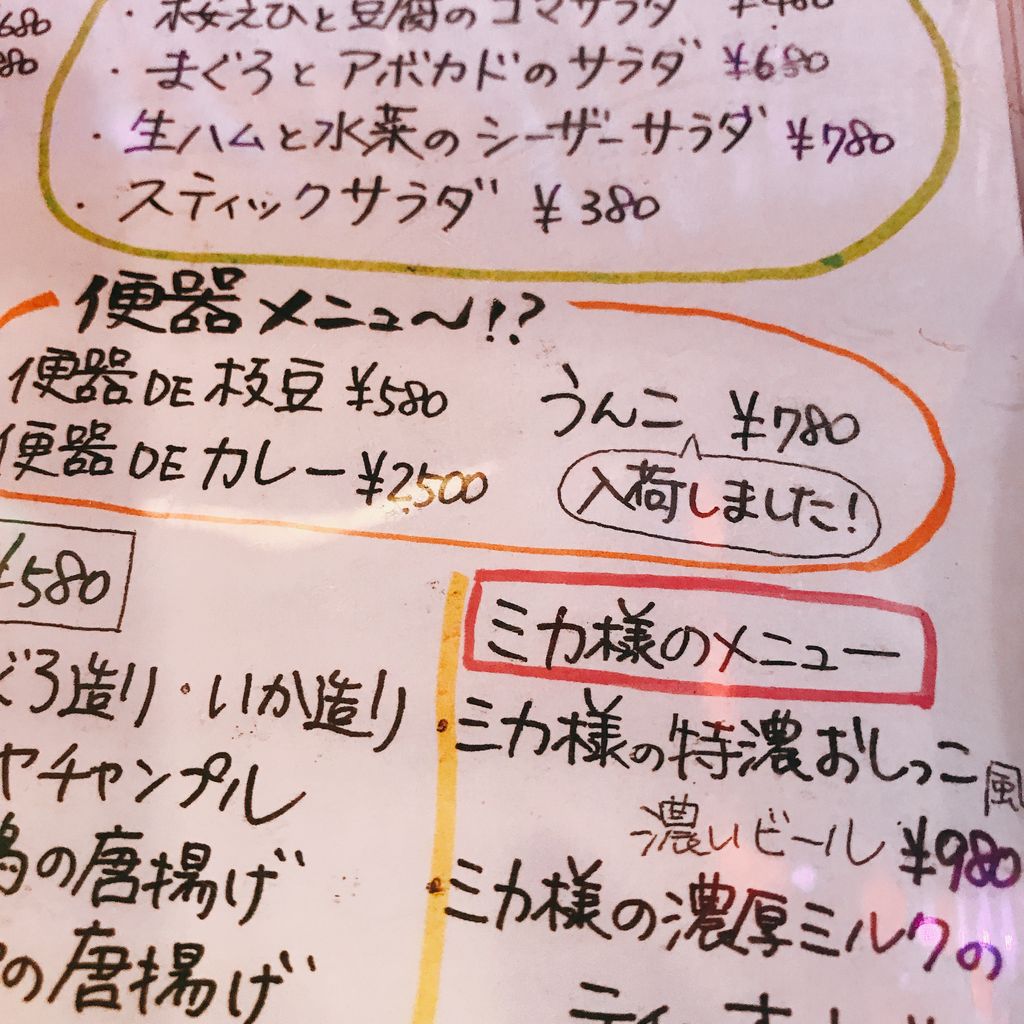 680
・桜えびと豆腐のゴマサラダ ¥480
・まぐろとアボカドのサラダ ¥680
・生ハムと水菜のシーザーサラダ ¥780
・スティックサラダ ¥380
便器メニュ〜!?
便器DE枝豆 ¥580
便器DEカレー ¥2500
うんこ ¥780
入荷しました!
¥580
ぐろ造り・いか造り
ヤチャンプル
の唐揚げ
の唐揚げ
ミカ様のメニュー
・ミカ様の特濃おしっこ風
濃いビール ¥980
・ミカ様の濃厚ミルクの